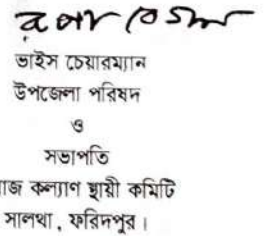 রূপা বেগম
ভাইস চেয়ারম্যান
উপজেলা পরিষদ
ও
সভাপতি
াজ কল্যাণ স্থায়ী কমিটি
সালথা, ফরিদপুর।